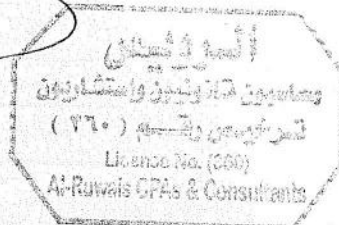 محاسبون قانونيون واستشاريون
ترخيص رقم ( ٣٦٠ )
Licence No. (360)
Al-Ruwais CPAs & Consultants